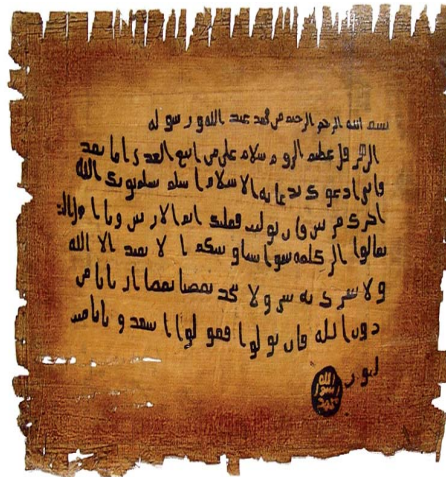 بسم الله الرحمن الرحيم من محمد عبد الله و رسوله
الى هرقل عظيم الروم سلام على من اتبع الهدى اما بعد
فانى ادعوك بدعاية الاسلام اسلم تسلم يوتك الله
اجرك مرتين فان توليت فعليك اثم الاريسين ويا اهل الـ
تعالوا الى كلمة سوا بيننا وبينكم الا نعبد الا الله
ولا نشرك به شيا ولا يتخذ بعضنا بعضا اربابا من
دون الله فان تولوا فقولوا اشهدوا بانا مسـ
لمون
الله
رسول
محمد